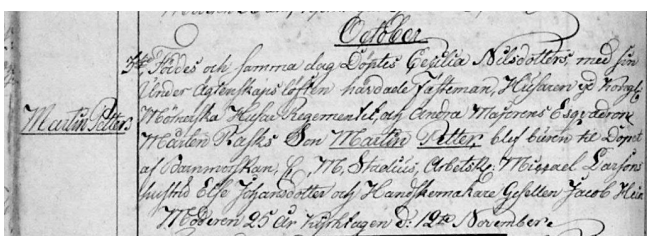 October
7de Föddes och samma dag Döptes Cesilia Nilsdotters, med sin
Under Ägtenskaps löften hafdade Fästeman, Husaren vid Kongl.
Mörnerska Husar Regementet, och Andra Majorens Esqvadron
Mårten Rasks Son Martin Petter, blef buren til Dopet
Martin Petter
af Barnmorskan, M. Stadius, Arbetsk. Michael Larsons
hustrid Else Johansdotter och Handskemakare Gesellen Jacob Hein
Moderen 25 År Kyrktagen d: 12te November